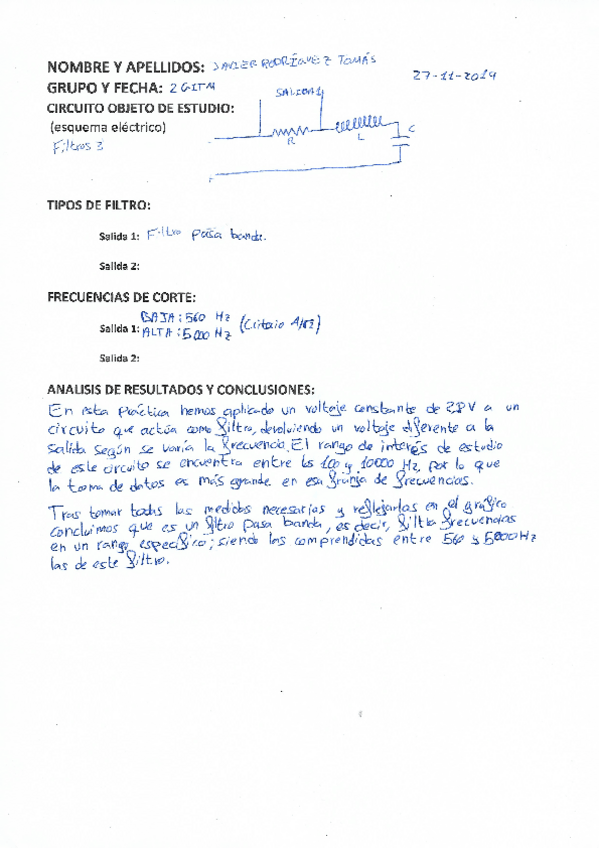 NOMBRE Y APELLIDOS: JAVIER RODRÍGUEZ TOMÁS
27-11-2019
GRUPO Y FECHA: 2 GITM
SALIDA 1
CIRCUITO OBJETO DE ESTUDIO:
(esquema eléctrico)
Filtros 3
R
L
C
TIPOS DE FILTRO:
Salida 1: Filtro pasa banda.
Salida 2:
FRECUENCIAS DE CORTE:
BAJA: 560 Hz
Salida 1: ALTA: 5000 Hz (Criterio A/√2)
Salida 2:
ANALISIS DE RESULTADOS Y CONCLUSIONES:
En esta práctica hemos aplicado un voltaje constante de 2PV a un
circuito que actúa como filtro, devolviendo un voltaje diferente a la
salida según se varía la frecuencia. El rango de interés de estudio
de este circuito se encuentra entre los 100 y 10000 Hz, por lo que
la toma de datos es más grande en esa franja de frecuencias.
Tras tomar todas las medidas necesarias y reflejarlas en el gráfico
concluimos que es un filtro pasa banda, es decir, filtra frecuencias
en un rango específico; siendo las comprendidas entre 560 y 5000 Hz
las de este filtro.